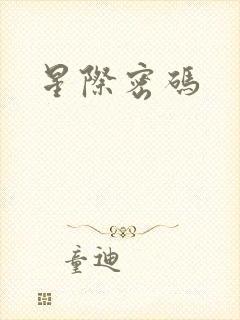 星際密碼
童迪